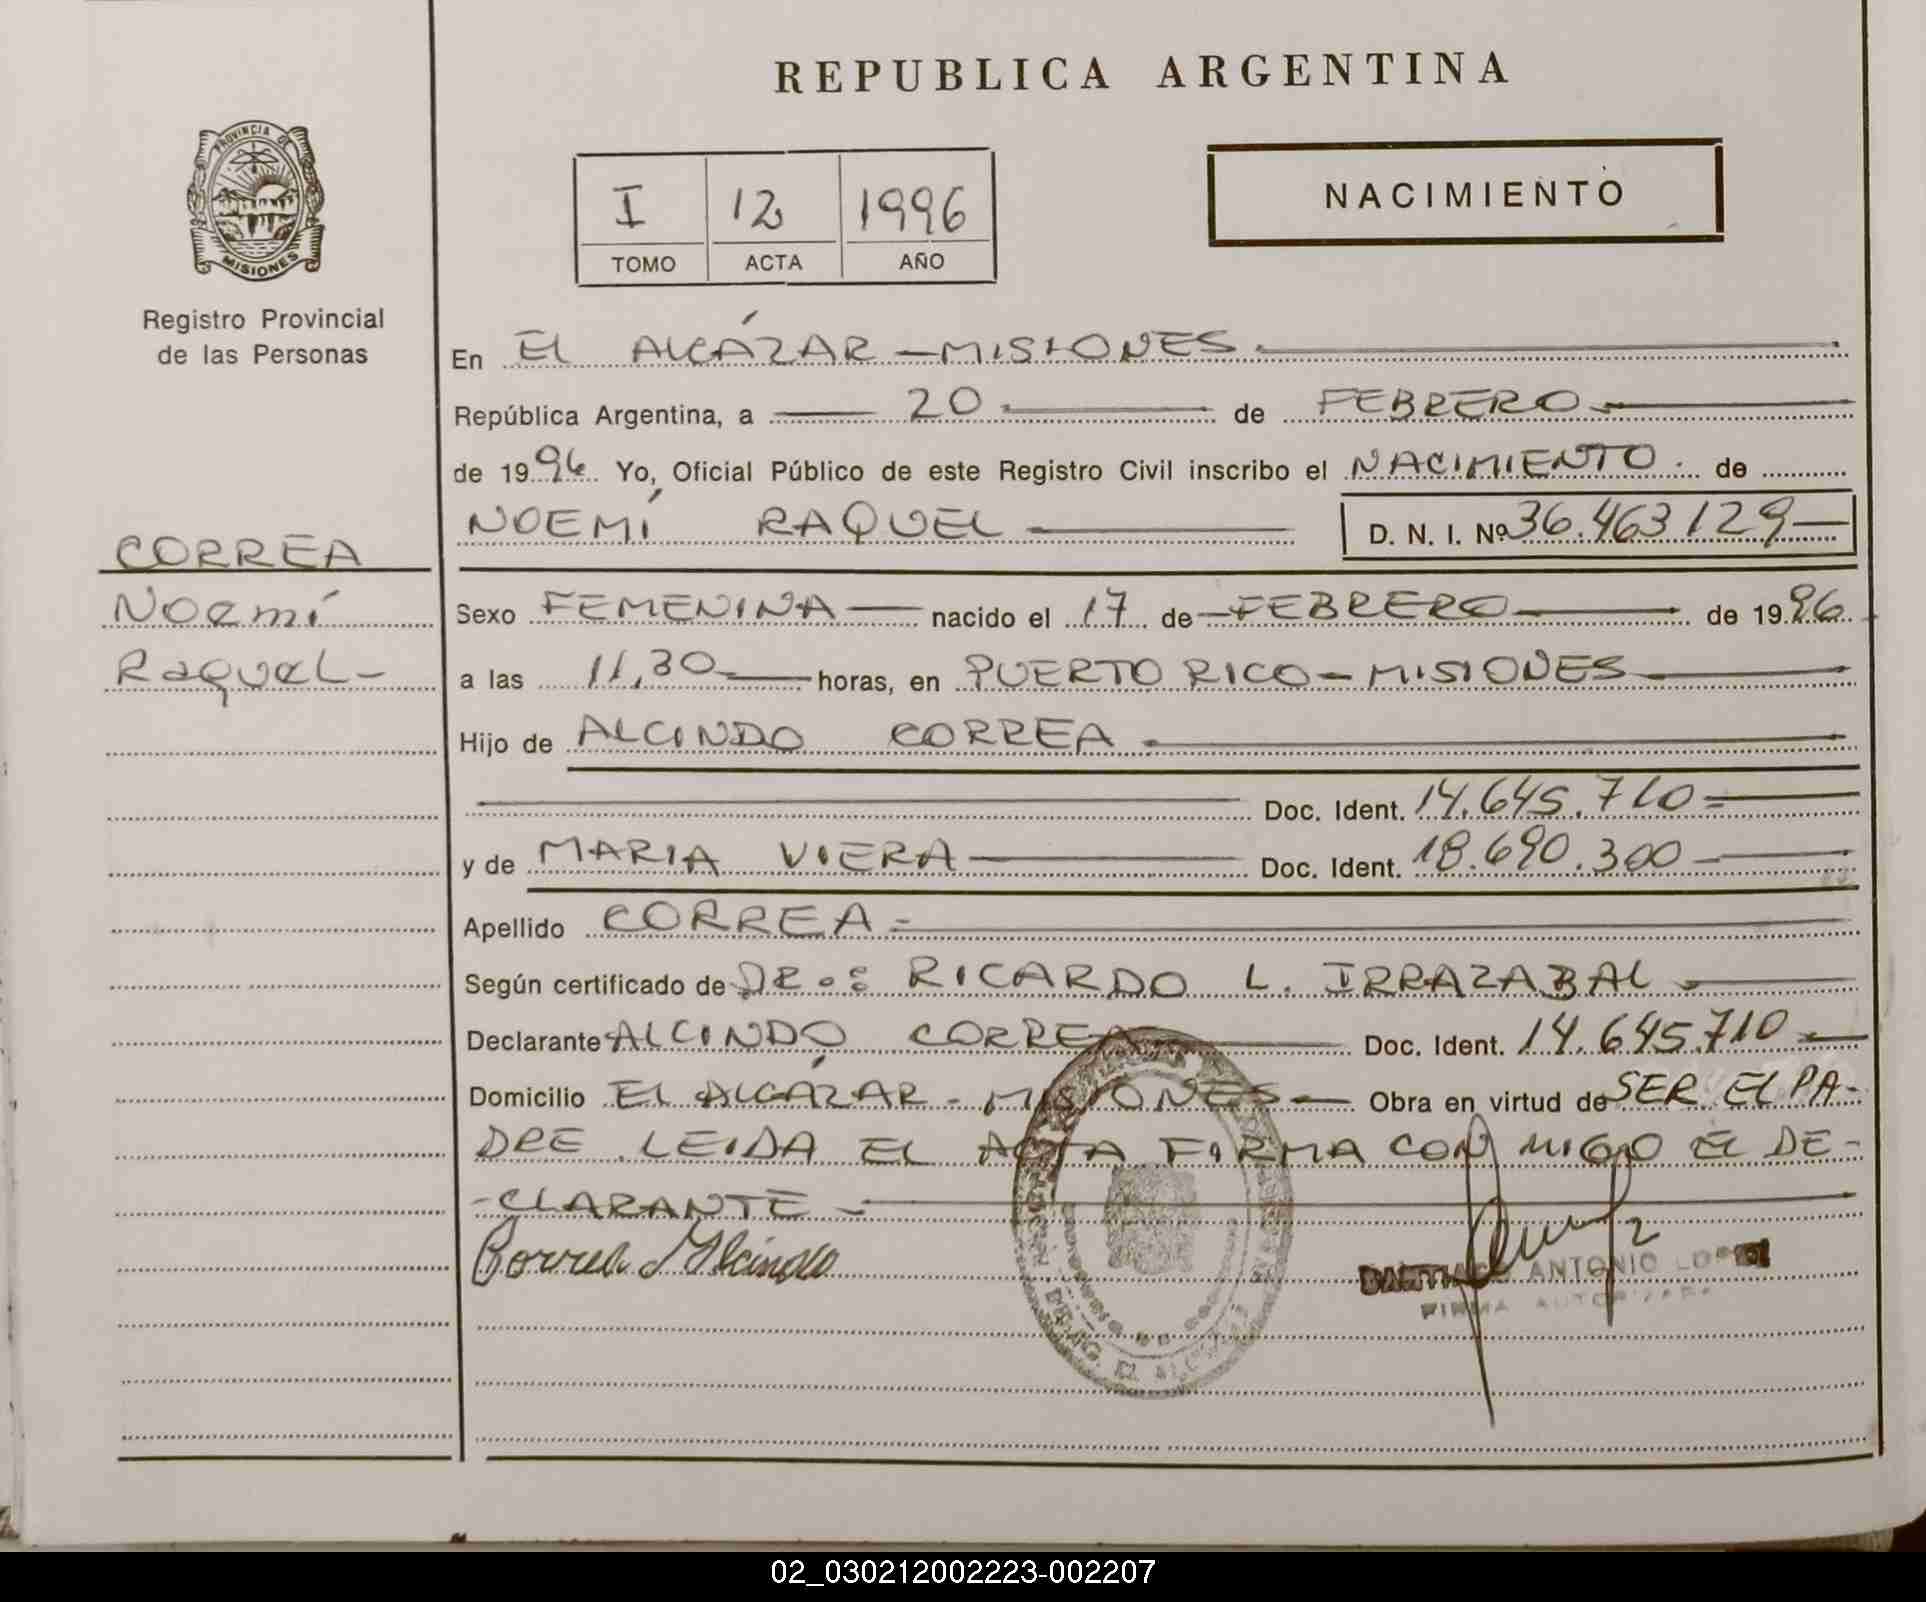 REPUBLICA ARGENTINA
PROVINCIA DE
MISIONES
Registro Provincial
de las Personas
I 12 1996
TOMO ACTA AÑO
NACIMIENTO
En EL ALCÁZAR - MISIONES.
República Argentina, a 20 de FEBRERO
de 1996. Yo, Oficial Público de este Registro Civil inscribo el NACIMIENTO. de
NOEMÍ RAQUEL D. N. I. Nº 36.463129
CORREA
Noemí
Raquel-
Sexo FEMENINA nacido el 17 de FEBRERO de 1996
a las 11,30 horas, en PUERTO RICO - MISIONES
Hijo de ALCINDO CORREA
Doc. Ident. 14.645.710
y de MARIA VIERA Doc. Ident. 18.690.300
Apellido CORREA
Según certificado de DR.: RICARDO L. IRRAZABAL
Declarante ALCINDO CORREA Doc. Ident. 14.645.710
Domicilio EL ALCÁZAR - MISIONES Obra en virtud de SER EL PA-
DRE. LEIDA EL ACTA FIRMA CON MIGO EL DE-
-CLARANTE
Correa Alcindo
SANTIAGO ANTONIO LOPEZ
FIRMA AUTORIZADA
02_030212002223-002207